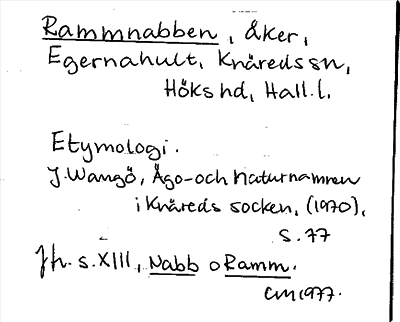 Rammnabben, åker,
Egernahult, Knäreds sn,
Höks hd, Hall. l.
Etymologi.
J. Wangö, Ägo- och naturnamnen
i Knäreds socken, (1970),
s. 77
Jh. s. XIII, Nabb o Ramm.
CM 1977.